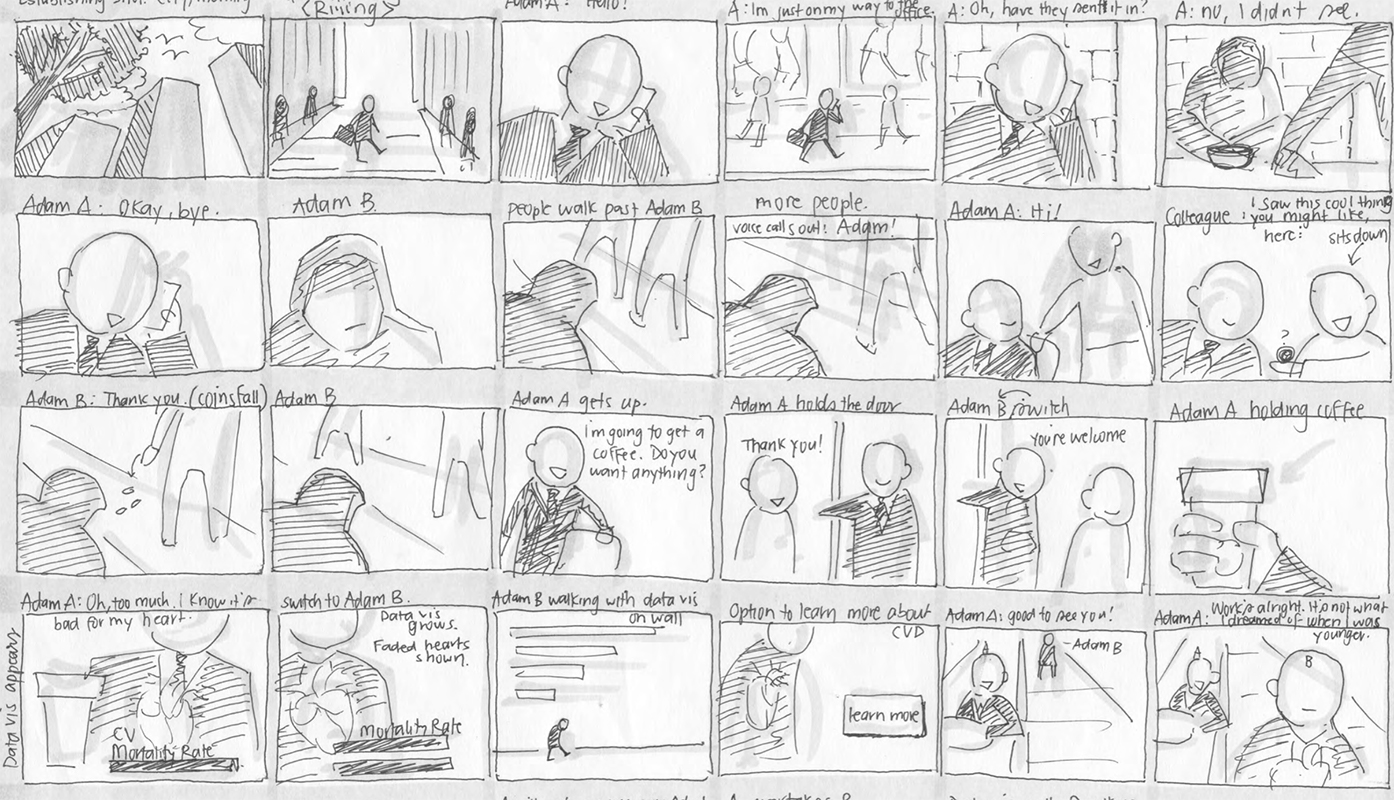 Establishing shot: city/morning
(Rising)
Adam A: Hello!
A: I'm just on my way to the
office.
A: Oh, have they sent it in?
A: no, I didn't see.
Adam A: Okay, bye.
Adam B.
people walk past Adam B
more people.
voice calls out: Adam!
Adam A: Hi!
I saw this cool thing
Colleague: you might like,
here:
sits down
?
Adam B: Thank you. (coins fall)
Adam B
Adam A gets up.
I'm going to get a
coffee. Do you
want anything?
Adam A holds the door
Thank you!
Adam B switch
You're welcome
Adam A holding coffee
Data vis appears
Adam A: Oh, too much. I know it's
bad for my heart.
CV
Mortality Rate
switch to Adam B.
Data vis
grows.
Faded hearts
shown.
Mortality Rate
Adam B walking with data vis
on wall
Option to learn more about
CVD
learn more
Adam A: good to see you!
A
- Adam B
Adam A: Work's alright. It's not what
I dreamed of when I was
younger.
A
B